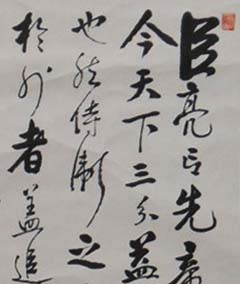 臣亮言先帝
今天下三分益
也然侍衛之
於外者蓋追